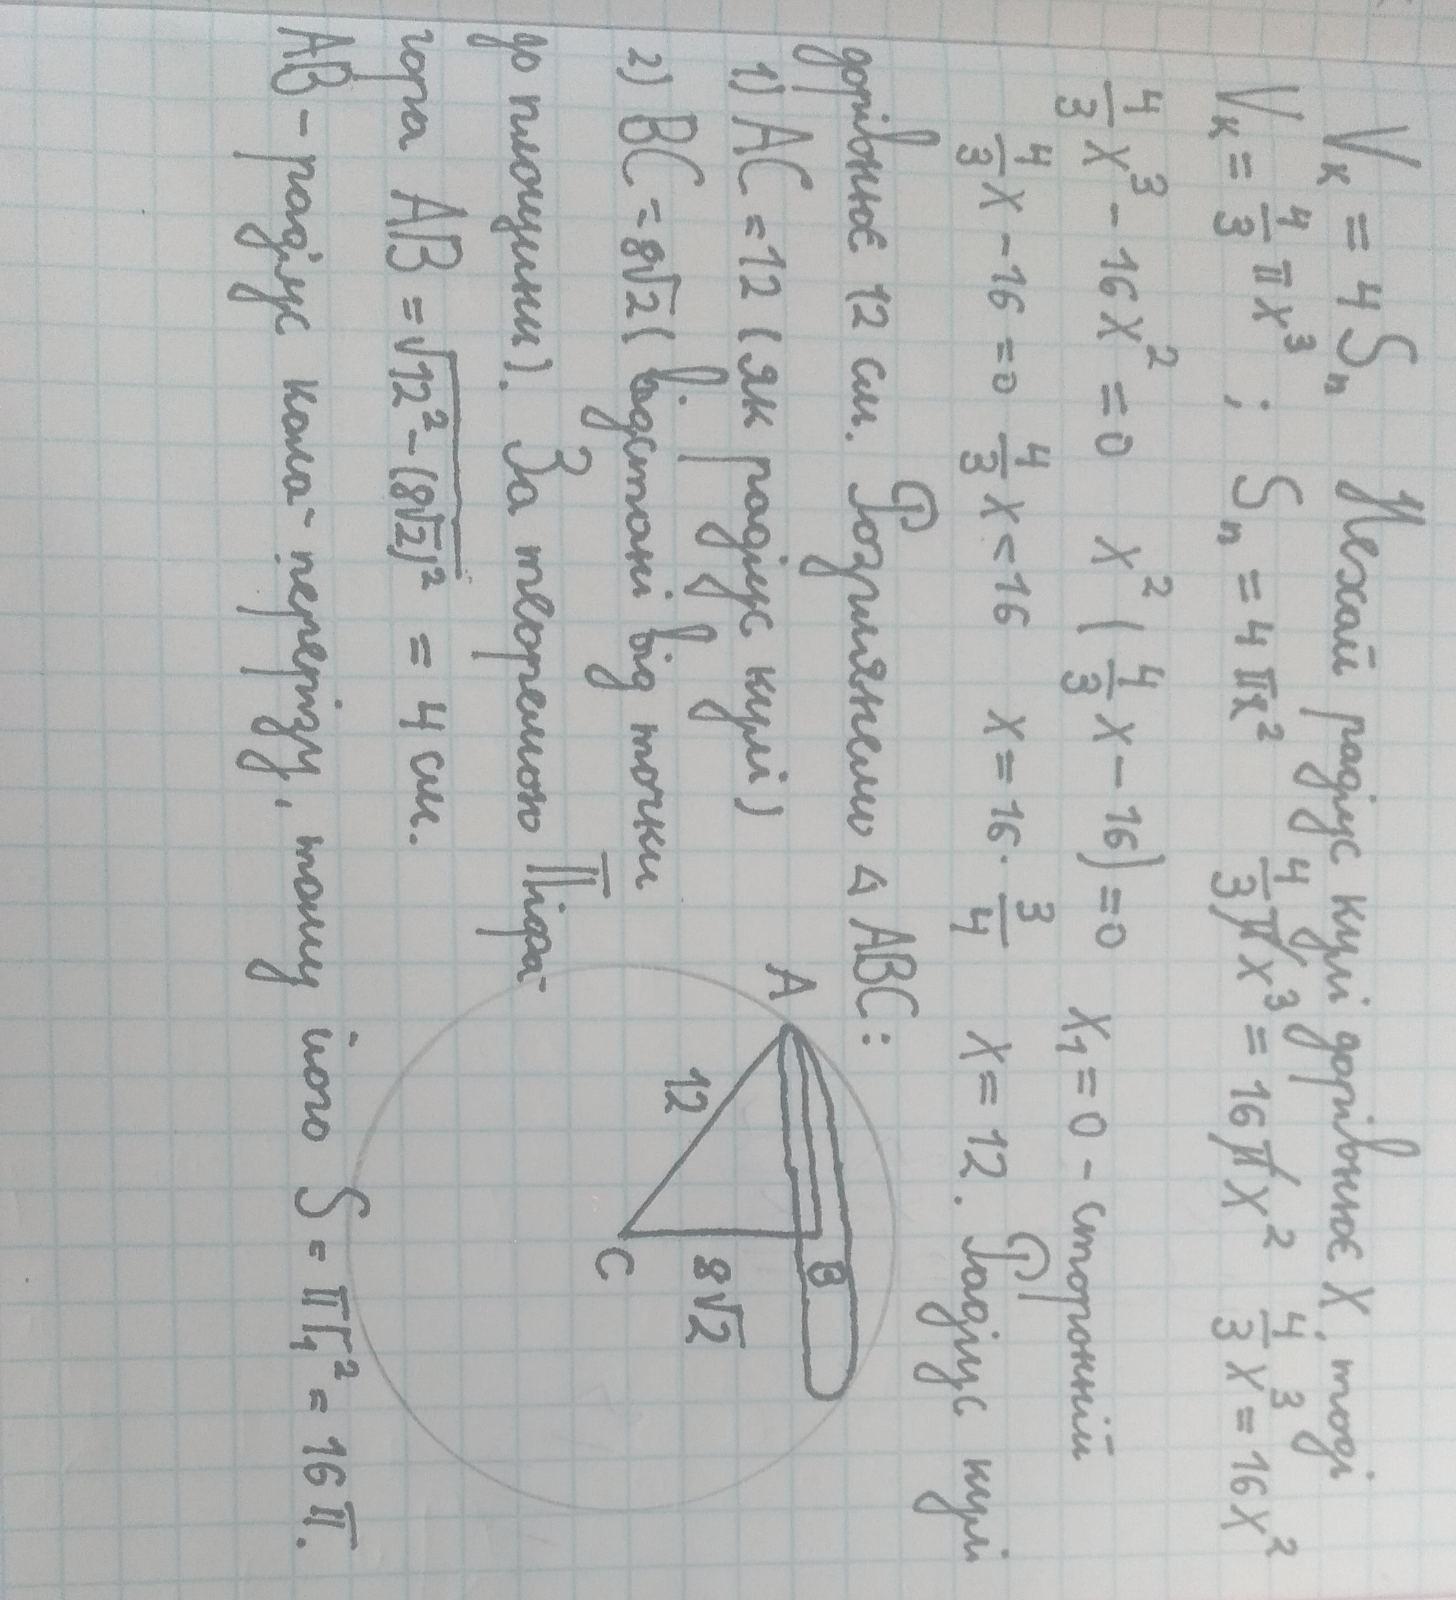 Vк = 4Sп Нехай радіус кулі дорівнює X, тоді
Vк = 4/3 πx³ ; Sп = 4πx² 4/3 πx³ = 16πx² 4/3 x³ = 16x²
4/3 x³ - 16x² = 0 x² (4/3 x - 16) = 0 x₁ = 0 - сторонній
4/3 x - 16 = 0 4/3 x = 16 x = 16 · 3/4 x = 12. Радіус кулі
дорівнює 12 см. Розглянемо △ ABC:
1) AC = 12 (як радіус кулі)
2) BC = 8√2 ( відстані від точки
до площини). За теоремою Піфа-
гора AB = √12² - (8√2)² = 4 см.
AB - радіус кола - перерізу, тому його S = πr₁² = 16π.
A
12
B
8√2
C